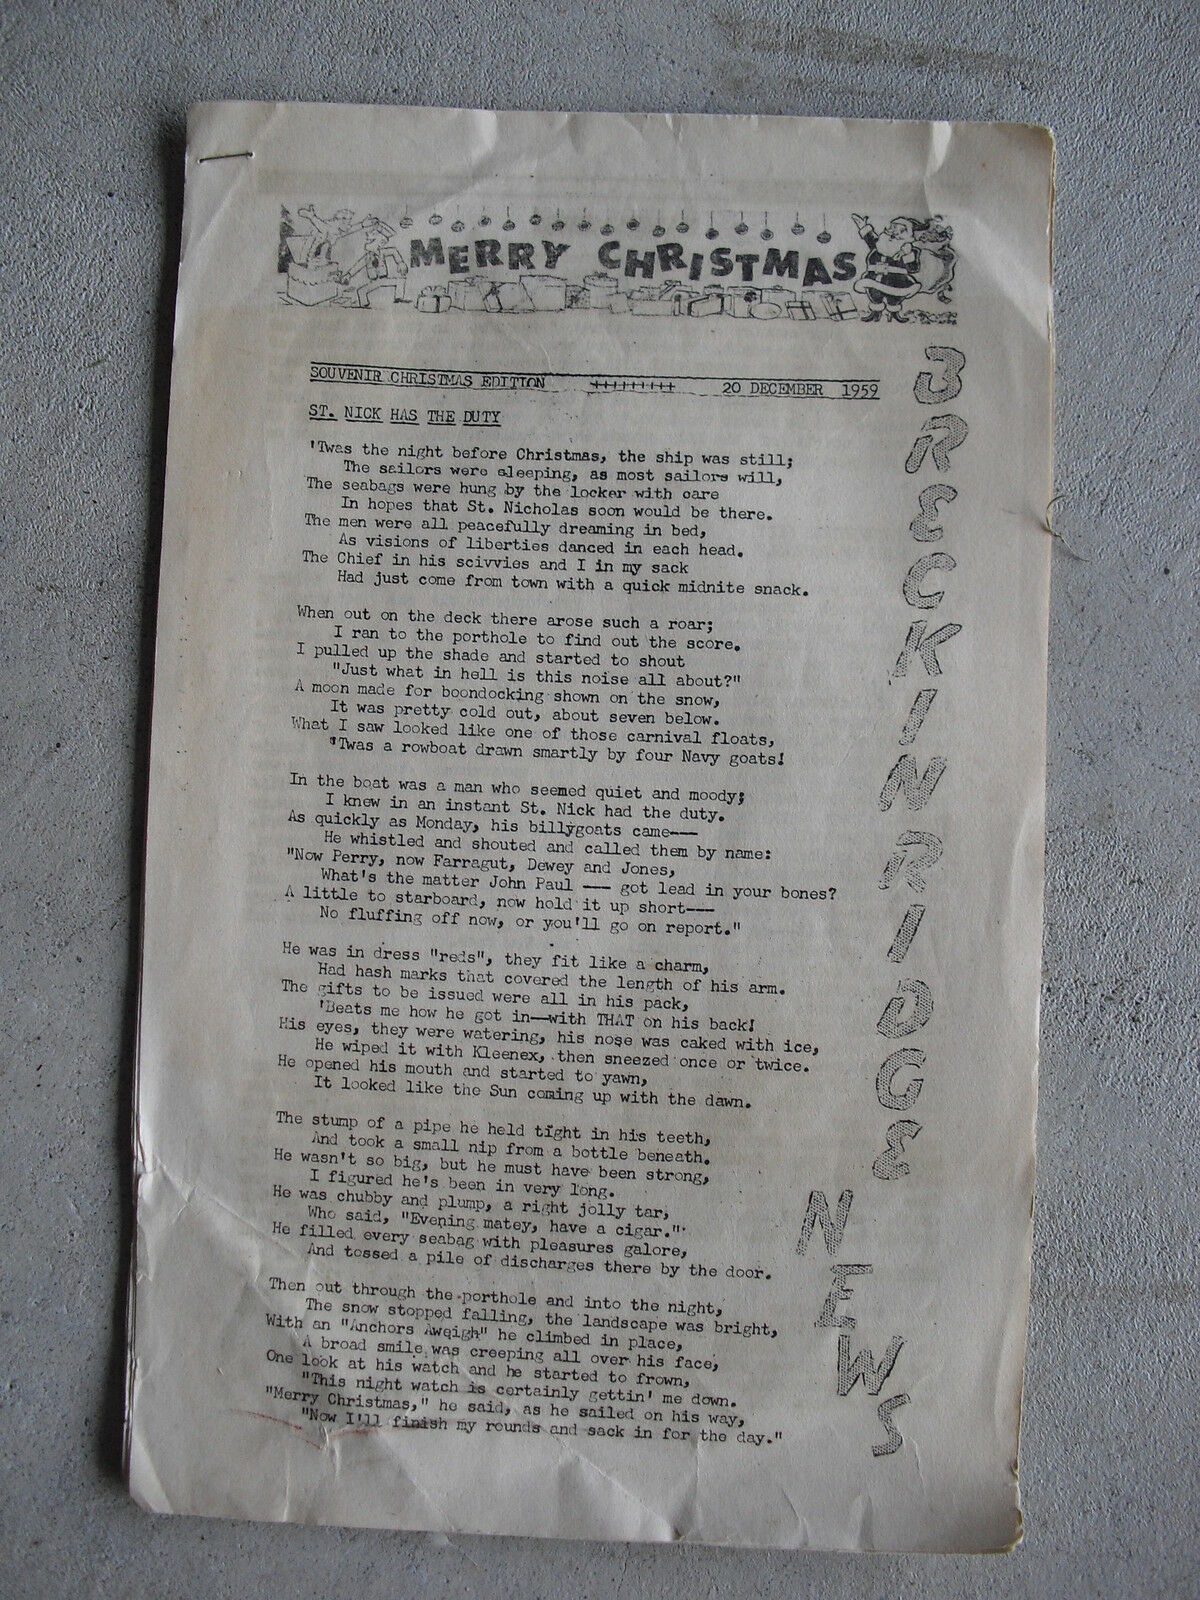 MERRY CHRISTMAS
BRECKINRIDGE NEWS
SOUVENIR CHRISTMAS EDITION +++++++++ 20 DECEMBER 1959
ST. NICK HAS THE DUTY
'Twas the night before Christmas, the ship was still;
The sailors were sleeping, as most sailors will,
The seabags were hung by the locker with care
In hopes that St. Nicholas soon would be there.
The men were all peacefully dreaming in bed,
As visions of liberties danced in each head.
The Chief in his scivvies and I in my sack
Had just come from town with a quick midnite snack.
When out on the deck there arose such a roar;
I ran to the porthole to find out the score.
I pulled up the shade and started to shout
"Just what in hell is this noise all about?"
A moon made for boondocking shown on the snow,
It was pretty cold out, about seven below.
What I saw looked like one of those carnival floats,
'Twas a rowboat drawn smartly by four Navy goats!
In the boat was a man who seemed quiet and moody;
I knew in an instant St. Nick had the duty.
As quickly as Monday, his billygoats came---
He whistled and shouted and called them by name:
"Now Perry, now Farragut, Dewey and Jones,
What's the matter John Paul --- got lead in your bones?
A little to starboard, now hold it up short---
No fluffing off now, or you'll go on report."
He was in dress "reds", they fit like a charm,
Had hash marks that covered the length of his arm.
The gifts to be issued were all in his pack,
'Beats me how he got in--with THAT on his back!
His eyes, they were watering, his nose was caked with ice,
He wiped it with Kleenex, then sneezed once or twice.
He opened his mouth and started to yawn,
It looked like the Sun coming up with the dawn.
The stump of a pipe he held tight in his teeth,
And took a small nip from a bottle beneath.
He wasn't so big, but he must have been strong,
I figured he's been in very long.
He was chubby and plump, a right jolly tar,
Who said, "Evening matey, have a cigar."
He filled every seabag with pleasures galore,
And tossed a pile of discharges there by the door.
Then out through the porthole and into the night,
The snow stopped falling, the landscape was bright,
With an "Anchors Aweigh" he climbed in place,
A broad smile was creeping all over his face,
One look at his watch and he started to frown,
"This night watch is certainly gettin' me down.
"Merry Christmas," he said, as he sailed on his way,
"Now I'll finish my rounds and sack in for the day."